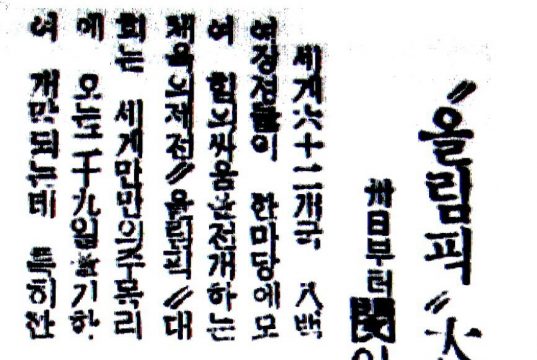 〃올림픽〃大
卅日부터
세계六十二개국 八백
여장정들이 한마당에모
여 힘의싸움을전개하는
체육의제전〃올림픽〃대
회는 세계만만의주목리
에 오는二十九일을기하
여 개막되는데 특히한